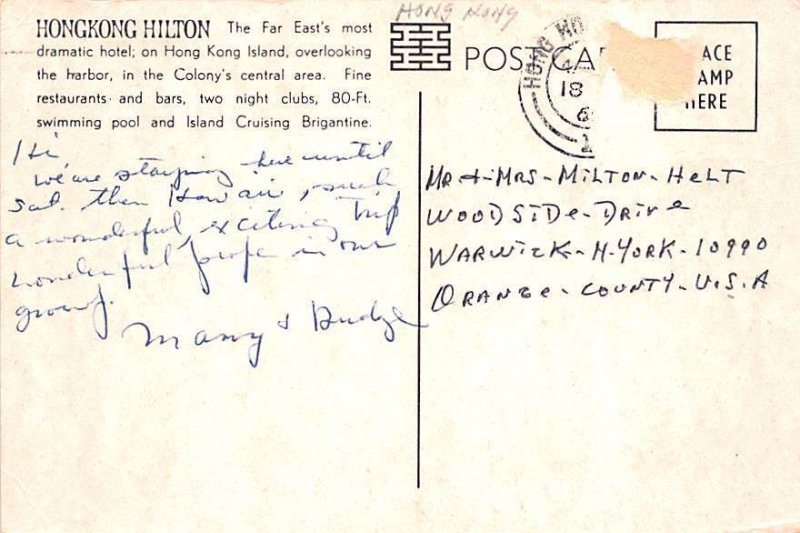 HONG KONG
HONGKONG HILTON The Far East's most
dramatic hotel; on Hong Kong Island, overlooking
the harbor, in the Colony's central area. Fine
restaurants and bars, two night clubs, 80-Ft.
swimming pool and Island Cruising Brigantine.
POST CAR
ACE
AMP
HERE
HONG KO
18
Hi
We are staying here until
Sat. then Hawaii, such
a wonderful, exciting trip
wonderful people in our
group.
Mary &
Mr + Mrs - Milton - Helt
Woodside - Drive
Warwick - N. York - 10990
Orange - County - U.S.A